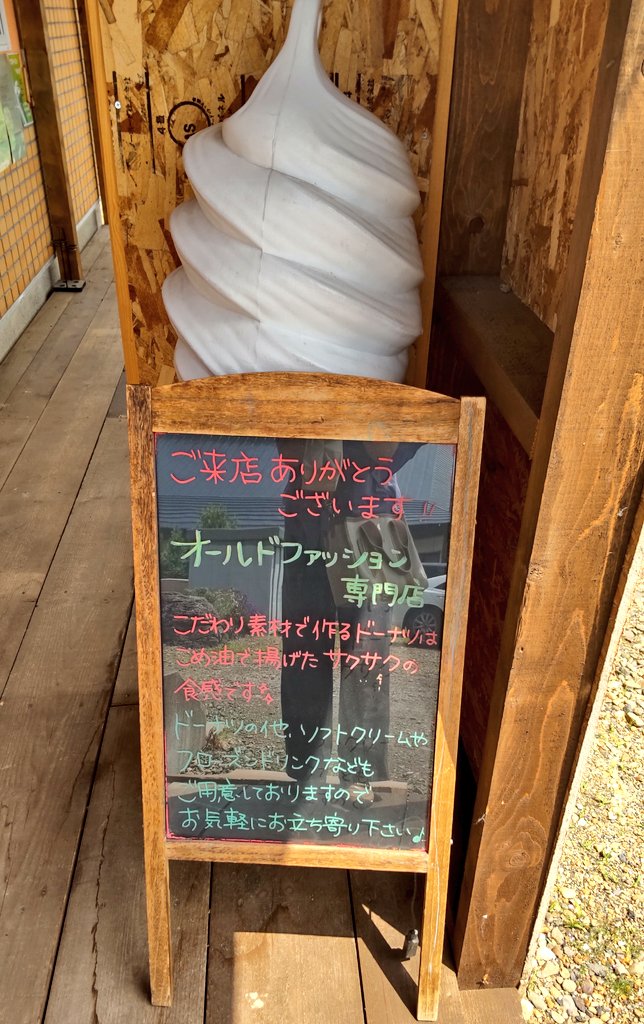 ご来店ありがとう
ございます!!
オールドファッション
専門店
こだわり素材で作るドーナツは
こめ油で揚げたサクサクの
食感です
ドーナツの他、ソフトクリームや
フローズンドリンクなども
ご用意しておりますので
お気軽にお立ち寄り下さい♪